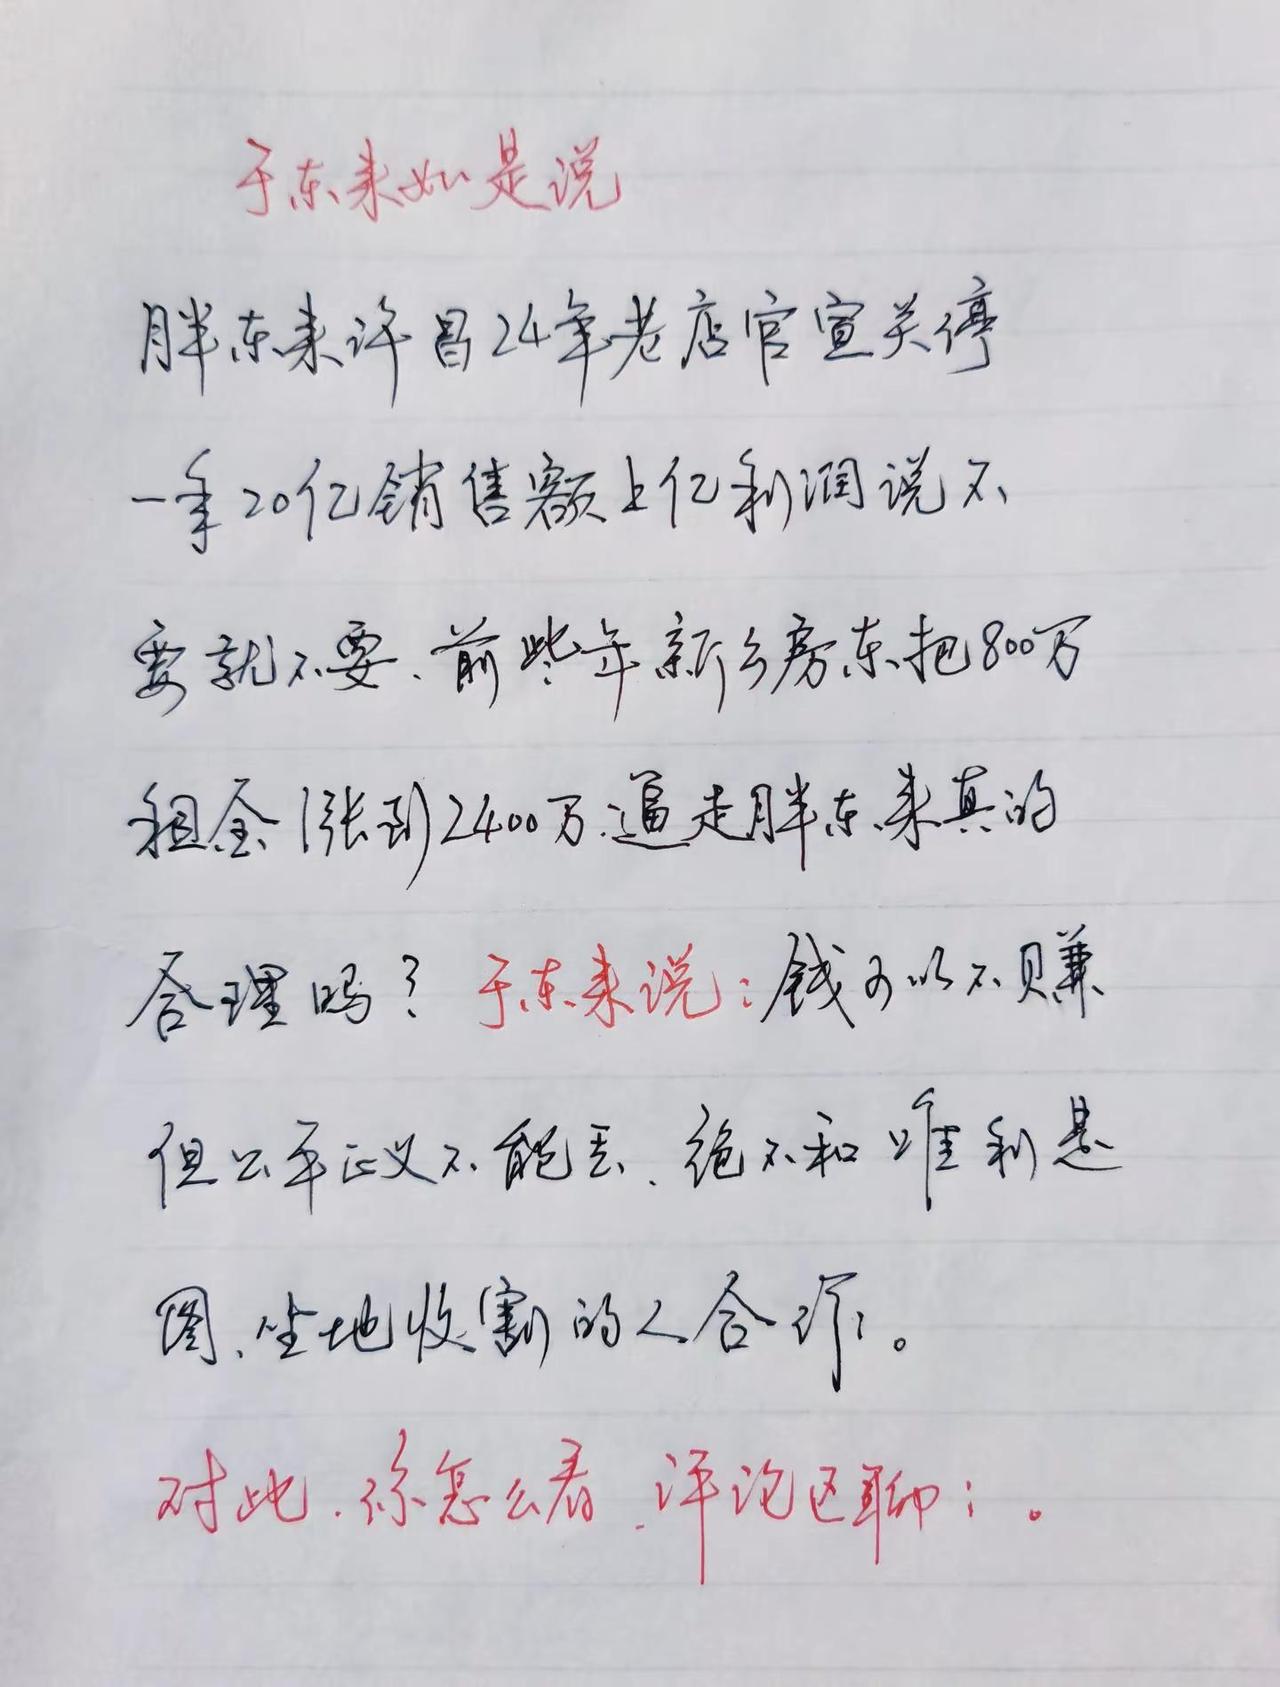 于东来如是说
胖东来许昌24年老店官宣关停
一年20亿销售额上亿利润说不
要就不要、前些年新乡房东把800万
租金涨到2400万逼走胖东来真的
合理吗？于东来说：钱可以不赚
但公平正义不能丢、绝不和唯利是
图、坐地收割的人合作。
对此、你怎么看、评论区聊聊。